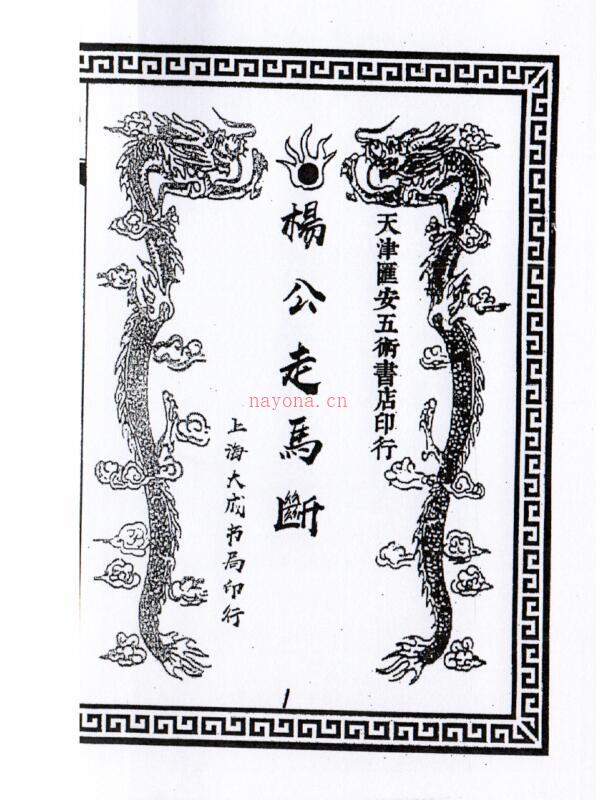 天津匯安五術書店印行
楊公走馬斷
上海大成书局印行
nayona.cn
1